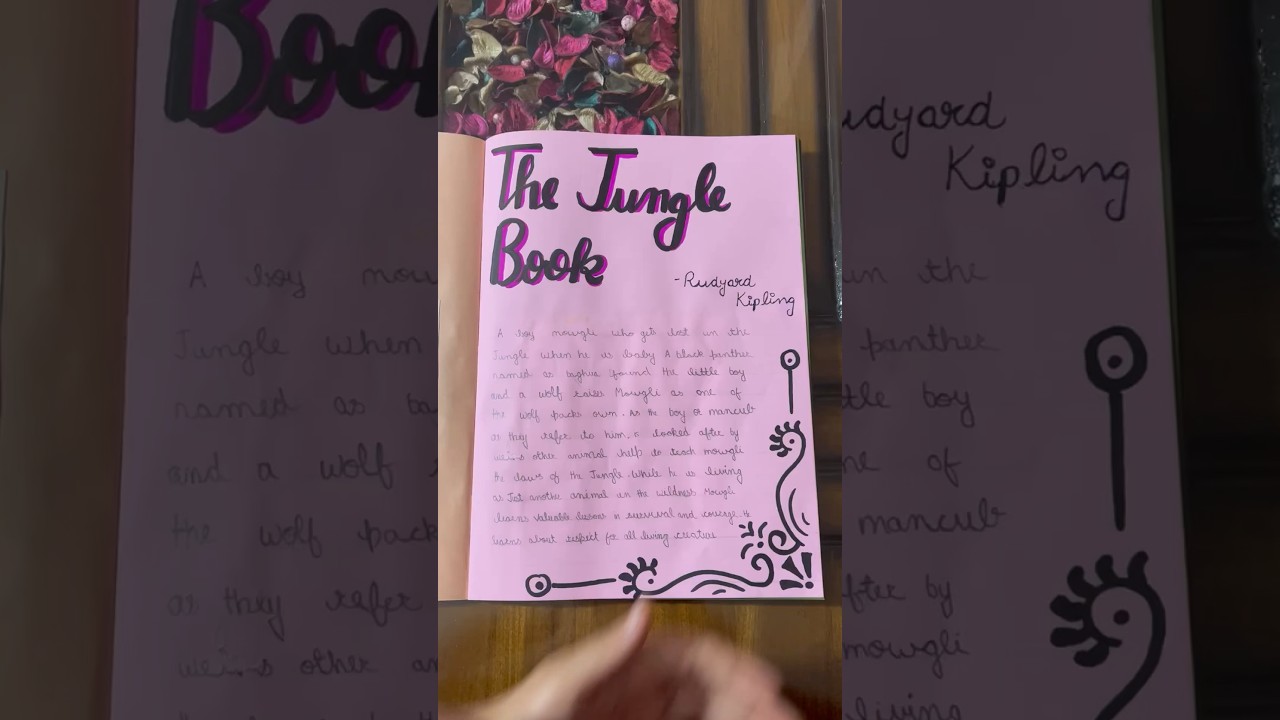 The Jungle
Book
- Rudyard
Kipling
A boy mowgli who gets lost in the
Jungle when he is baby A black panther
named as baghua found the little boy
and a wolf raises Mowgli as one of
the wolf packs own. As the boy or mancub
as they refer to him, is looked after by
other animal help to teach mowgli
the laws of the Jungle. While he is living
as Jst another animal in the wildness Mowgli
learns valuable lessons in survival and courage. He
learns about respect for all living creature